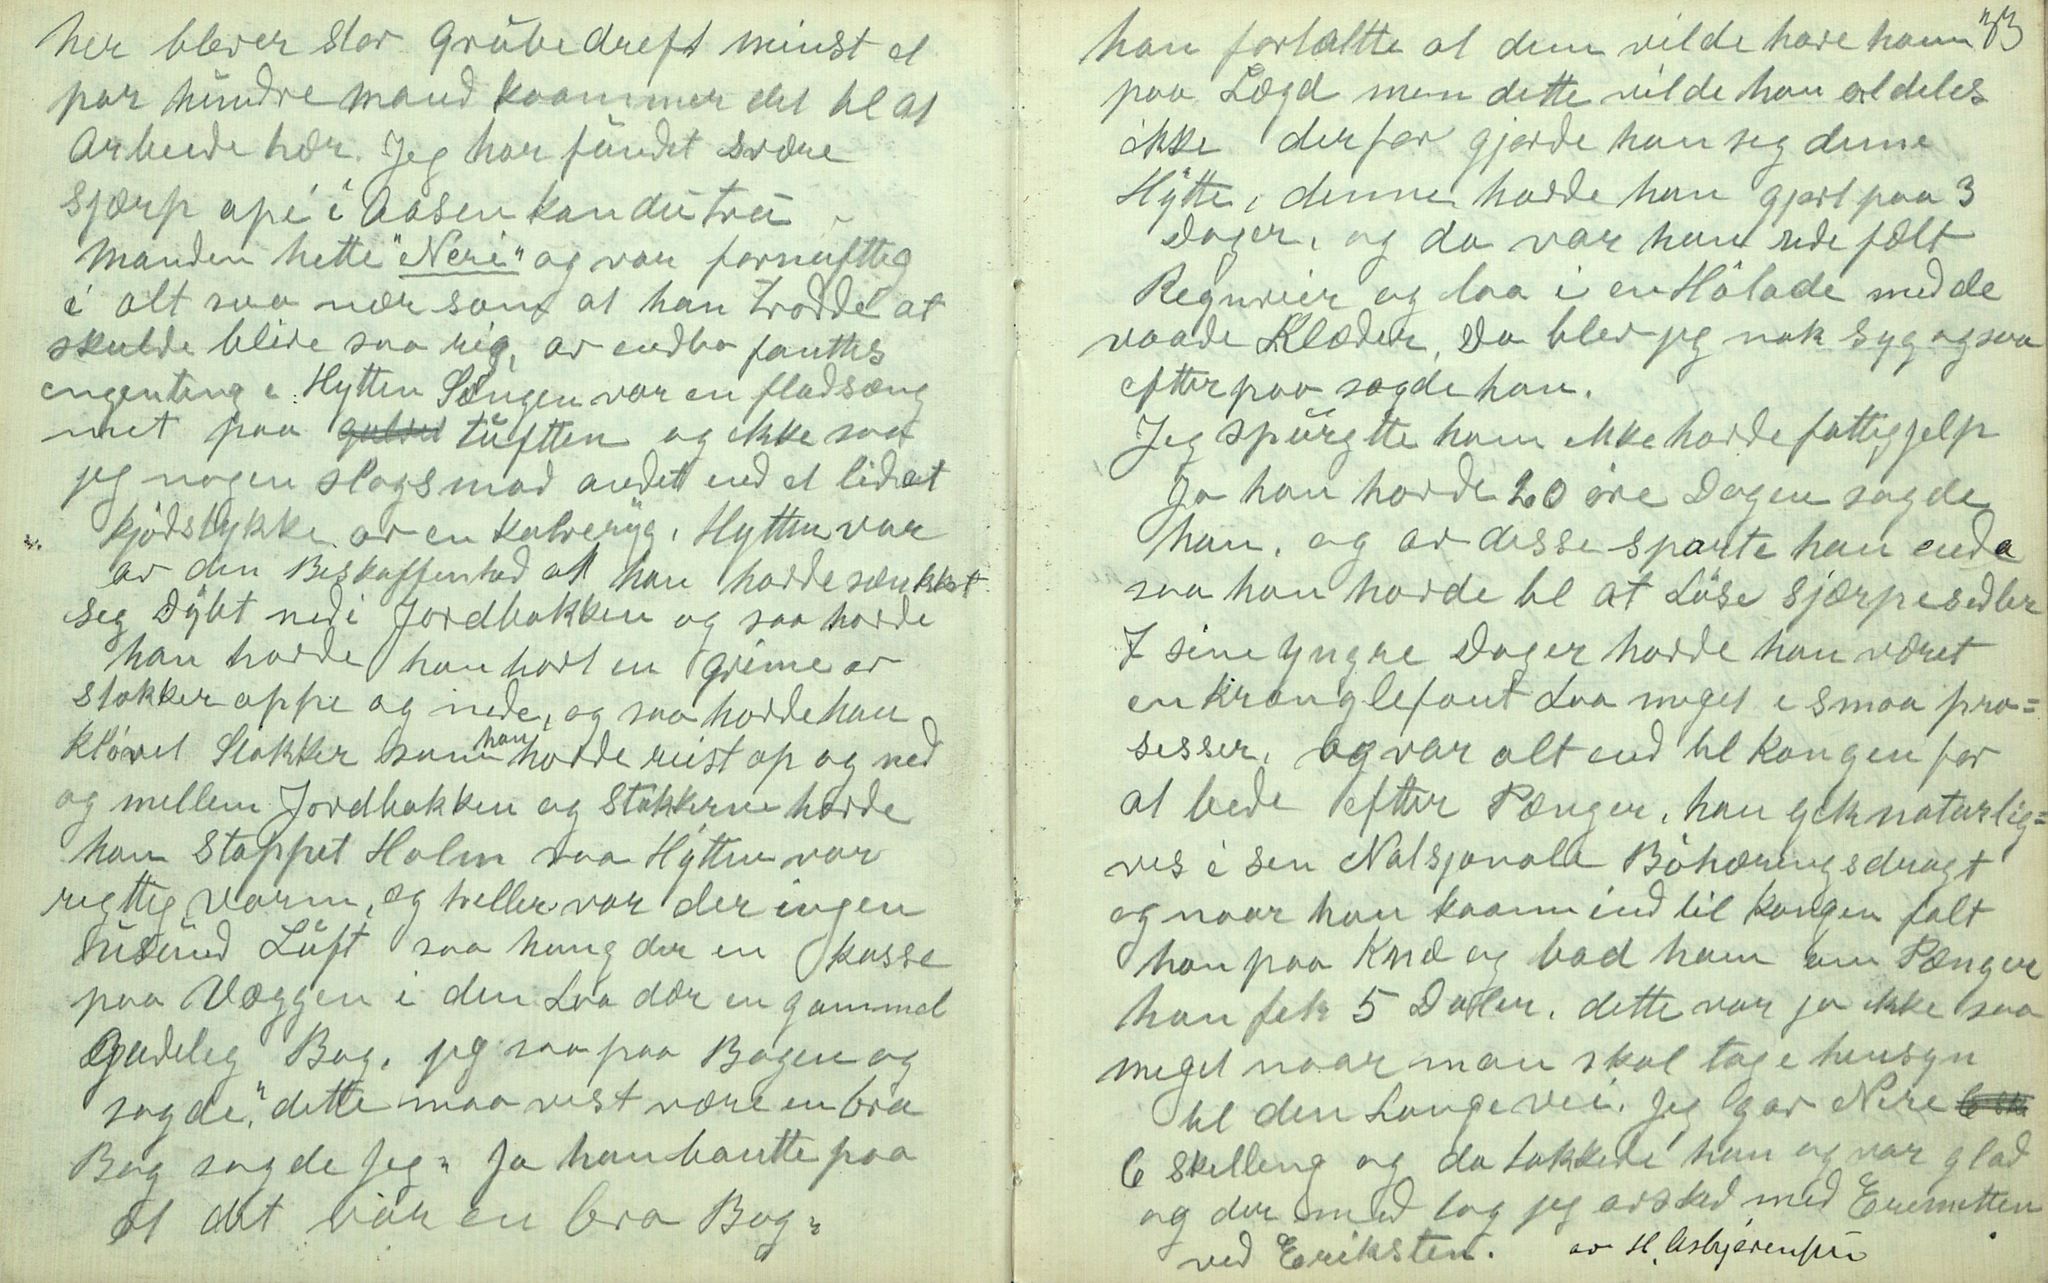 her blever stor Grübedreft minst et
par hündre mand kaammer det til at
Arbeide hær. Jeg har fündet svære
Sjærp opi i Aasen kan dü trü
Manden hette "Neri" og var fornufttig
i alt saa nær som at han trodde at
skulde blive saa rig, av endbo fanttes
engenting i Hytten Sængen var en fladsæng
met paa tüftten og ikke saa
jeg nogen slags mad andet end et lidet
kjödstykke av en kalverÿg. Hytten var
av den Beskaffenhed at han havde sænkket
seg Dÿbt ned i Jordbakken og saa havde
han havde han havt en grime av
stokker oppe og nede, og saa havde han
klövet Stokker som han havde reist op og ned
og mellem Jordbakken og Stokkerne havde
han Stappet Halm saa Hÿtten var
rigttig varm, og heller var der ingen
üsünd Lüft saa hang der en kasse
paa Væggen i den Laa dær en gammel
Gudelig Bog. jeg saa paa Bogen og
sagde, "dette maa vist være en bra
Bog sagde Jeg" Ja han bantte paa
at det var en bra Bog"
33
han fortaltte at dem vilde have ham
paa Lægd men dette vilde han aldeles
ikke derfor gjorde han seg denne
Hÿtte, denne havde han gjort paa 3
Dager, og da var han ude fælt
Regnveier og laa i en Hölade med de
vaade Klæder, Da blev jeg nok syg ogsaa
efter paa sagde han.
Jeg spürgtte ham ikke havde fattigjelp
Ja han havde 20 öre Dagen sagde
han, og av desse sparte han enda
saa han havde til at Löse Sjærpesedler
I sine yngre Dager havde han været
en kranglefant Laa meget i smaa pro=
sesser, og var alt end til kongen for
at bede efter Pænger, han gek naturlig=
ves i sen Natsjonale Böhæringsdragt
og naar han kaamm ind til kongen falt
han paa Knæ og bad ham om Pænger
han fek 5 Daler, dette var jo ikke saa
meget naar man skal tage hensyn
til den Lange vei. Jeg gav Nere
6 skelleng og da takkede han og var glad
og der med tog jeg avsked med Eremitten
ved Eriksten. av H. Asbjørensen